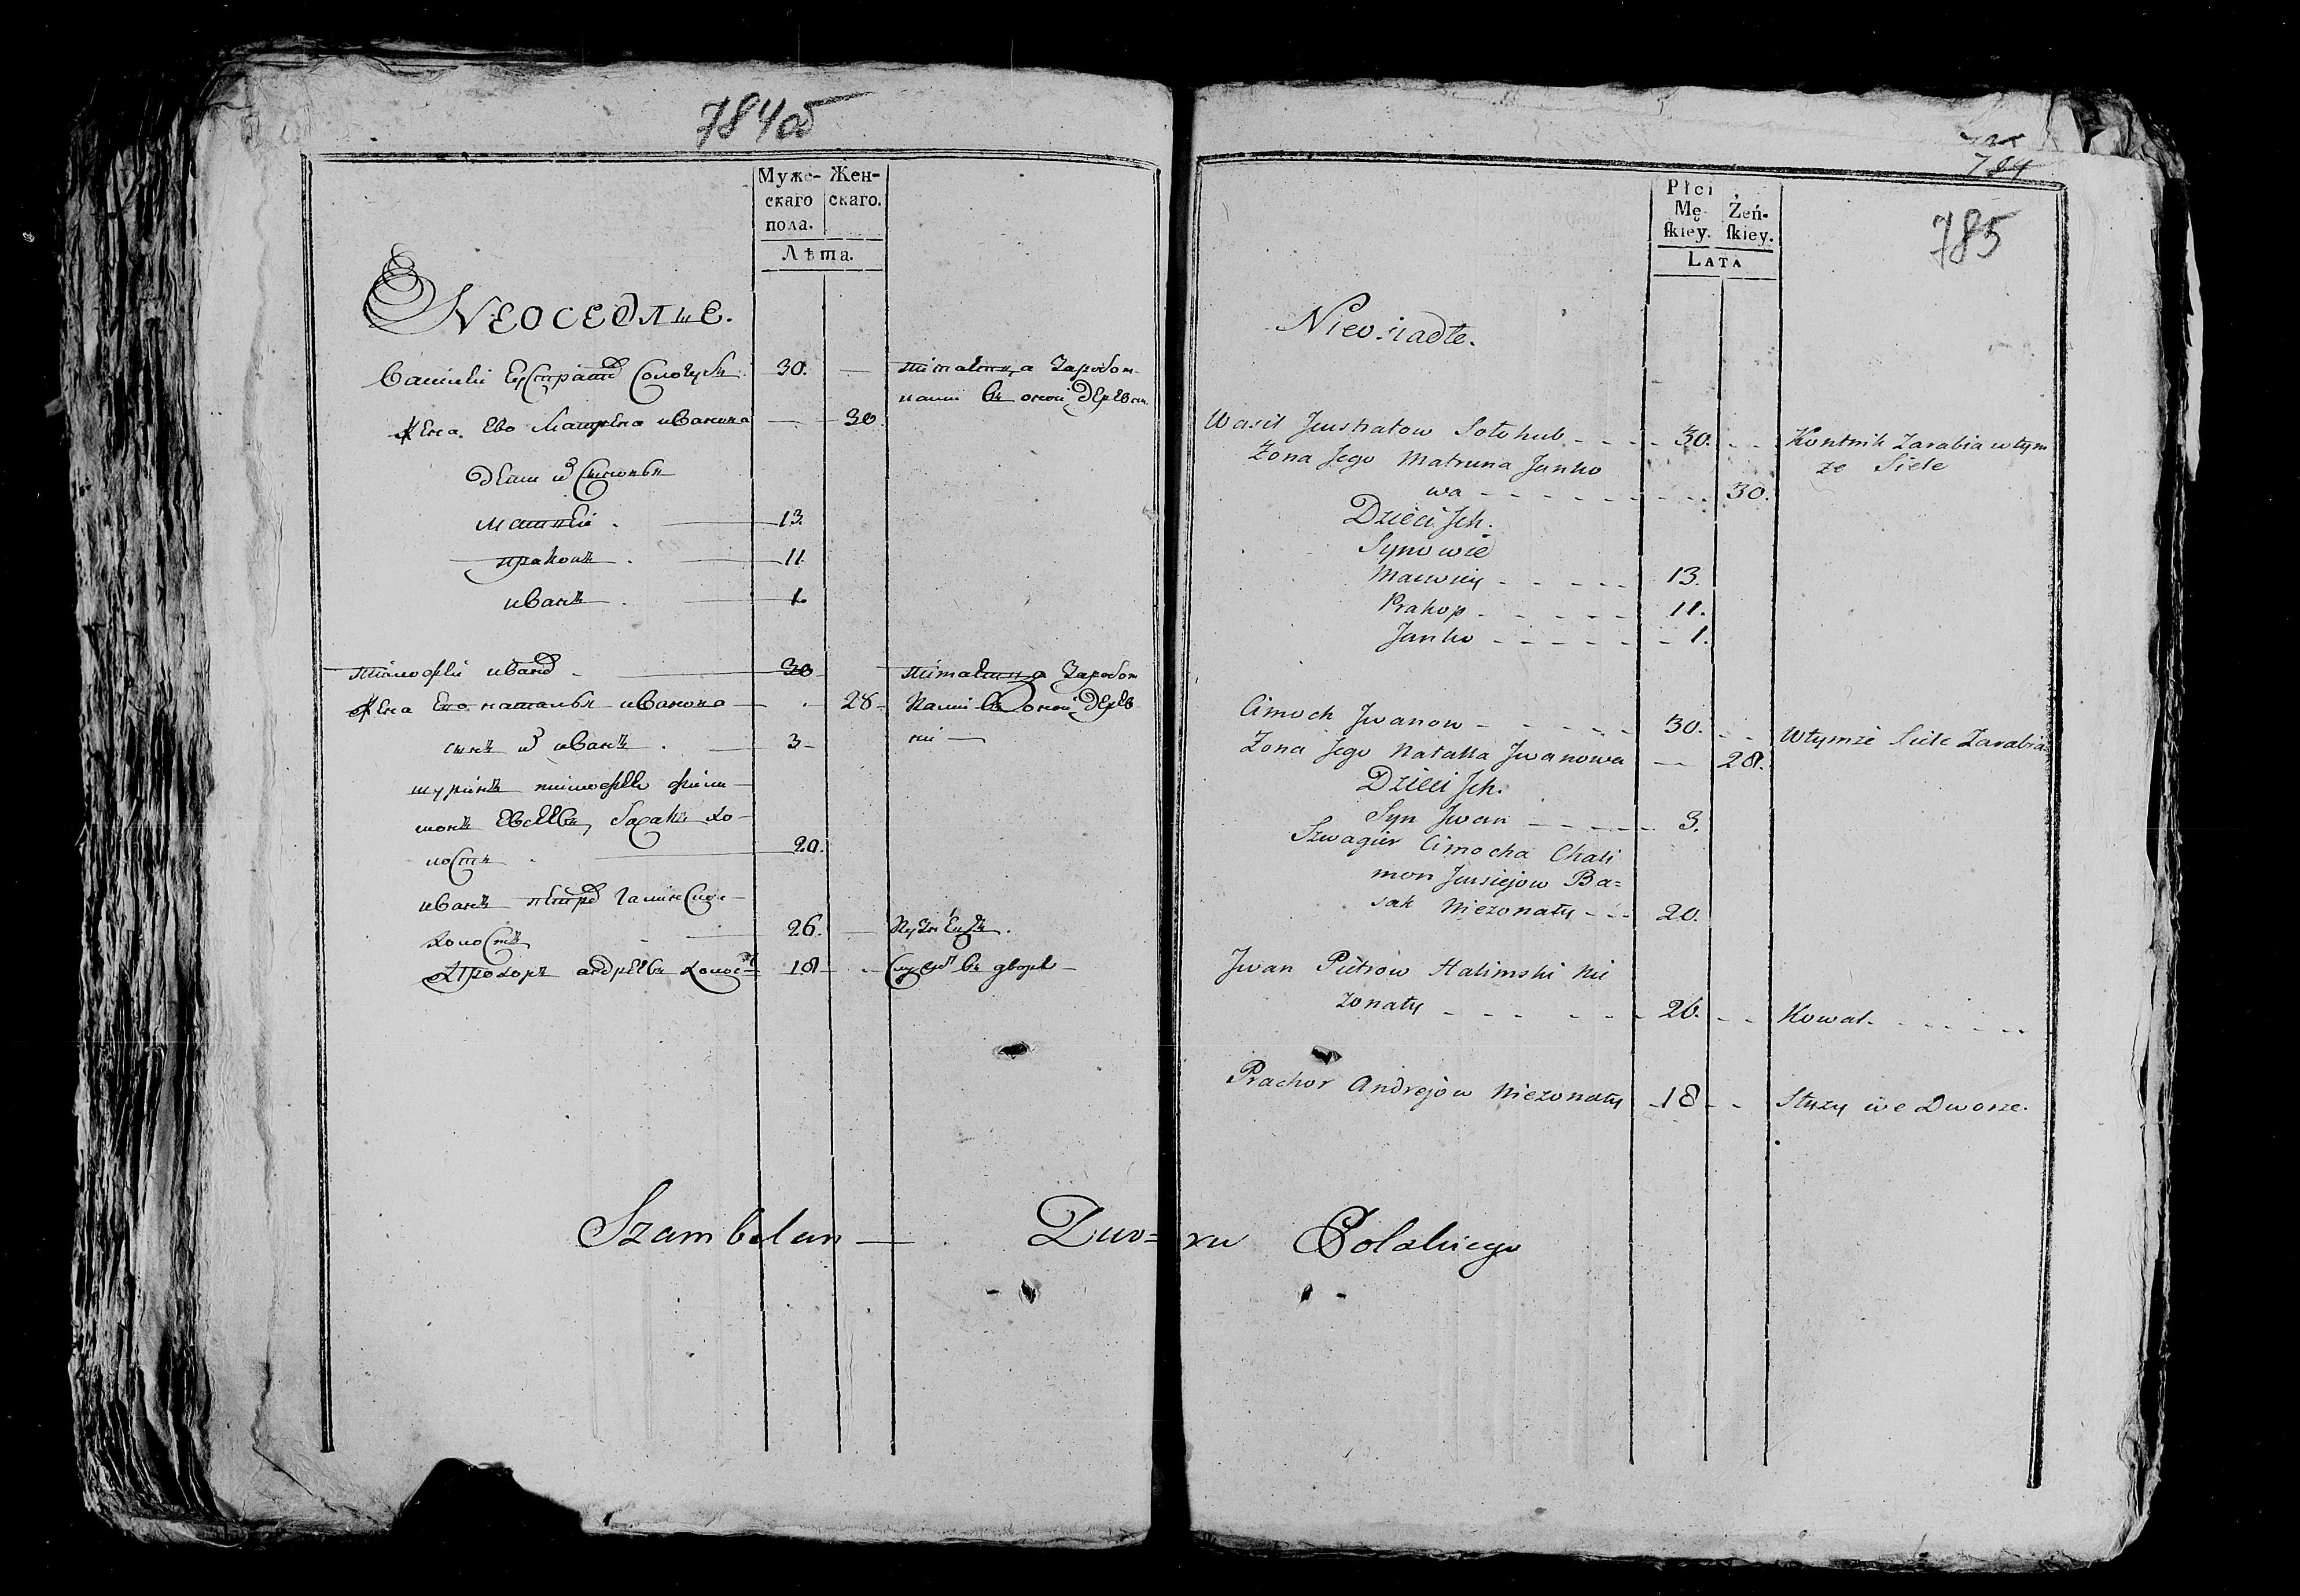 784об
Муже-
скаго
пола.
Жен-
скаго.
Лѣта.
Неоседлые.
Василей Еустратов Сологубъ 30. —
питается Заробот
ками въ оной деревни
Жена Ево Матрена иванова — 30
дети их Сыновья
Матвей . — 13.
пракопъ . — 11.
иванъ . — 1.
тимофей иванов . — 30
питается Заробот
Жена Его наталья иванова — . 28
ками въ оной дерев
сынъ их иванъ . — 3 —
ни —
шуринъ тимофея фили —
монъ Евсеевъ, басакъ хо —
лостъ . — 20.
иванъ петров галинский —
холостъ — 26. — Кузнецъ .
прохоръ андреевъ холостъ 18 — служит въ дворе —
Szambelan — Dwo=ru Polskiego
784
785
Płci
Mę-
ſkiey.
Żeń-
ſkiey.
LATA
Nieosiadłe.
Wasil Jewstratow Sołohub - - - - 30. - - Kontnik Zarabia w tym
że Siele
Zona Jego Matruna Janko
wa - - - - - - - - 30.
Dzieci Jch.
Synowie
Maćwiey - - - - - 13.
Prakop - - - - - 11.
Janko - - - - - - 1.
Cimoch Jwanow - - - - - 30. - - W tymże Siele Zarabia
Zona Jego Natalla Jwanowa — 28.
Dzieci Jch.
Syn Jwan - - - - - 3.
Szwagier Cimocha Chali
mon Jewsiejow Ba=
sak Niezonaty - - - 20.
Jwan Pietrow Halinski Nie
zonaty - - - - - - 26. - - Kowal. - - - - - -
Prachor Andrejow Niezonaty - 18 - - Służy we Dworze.